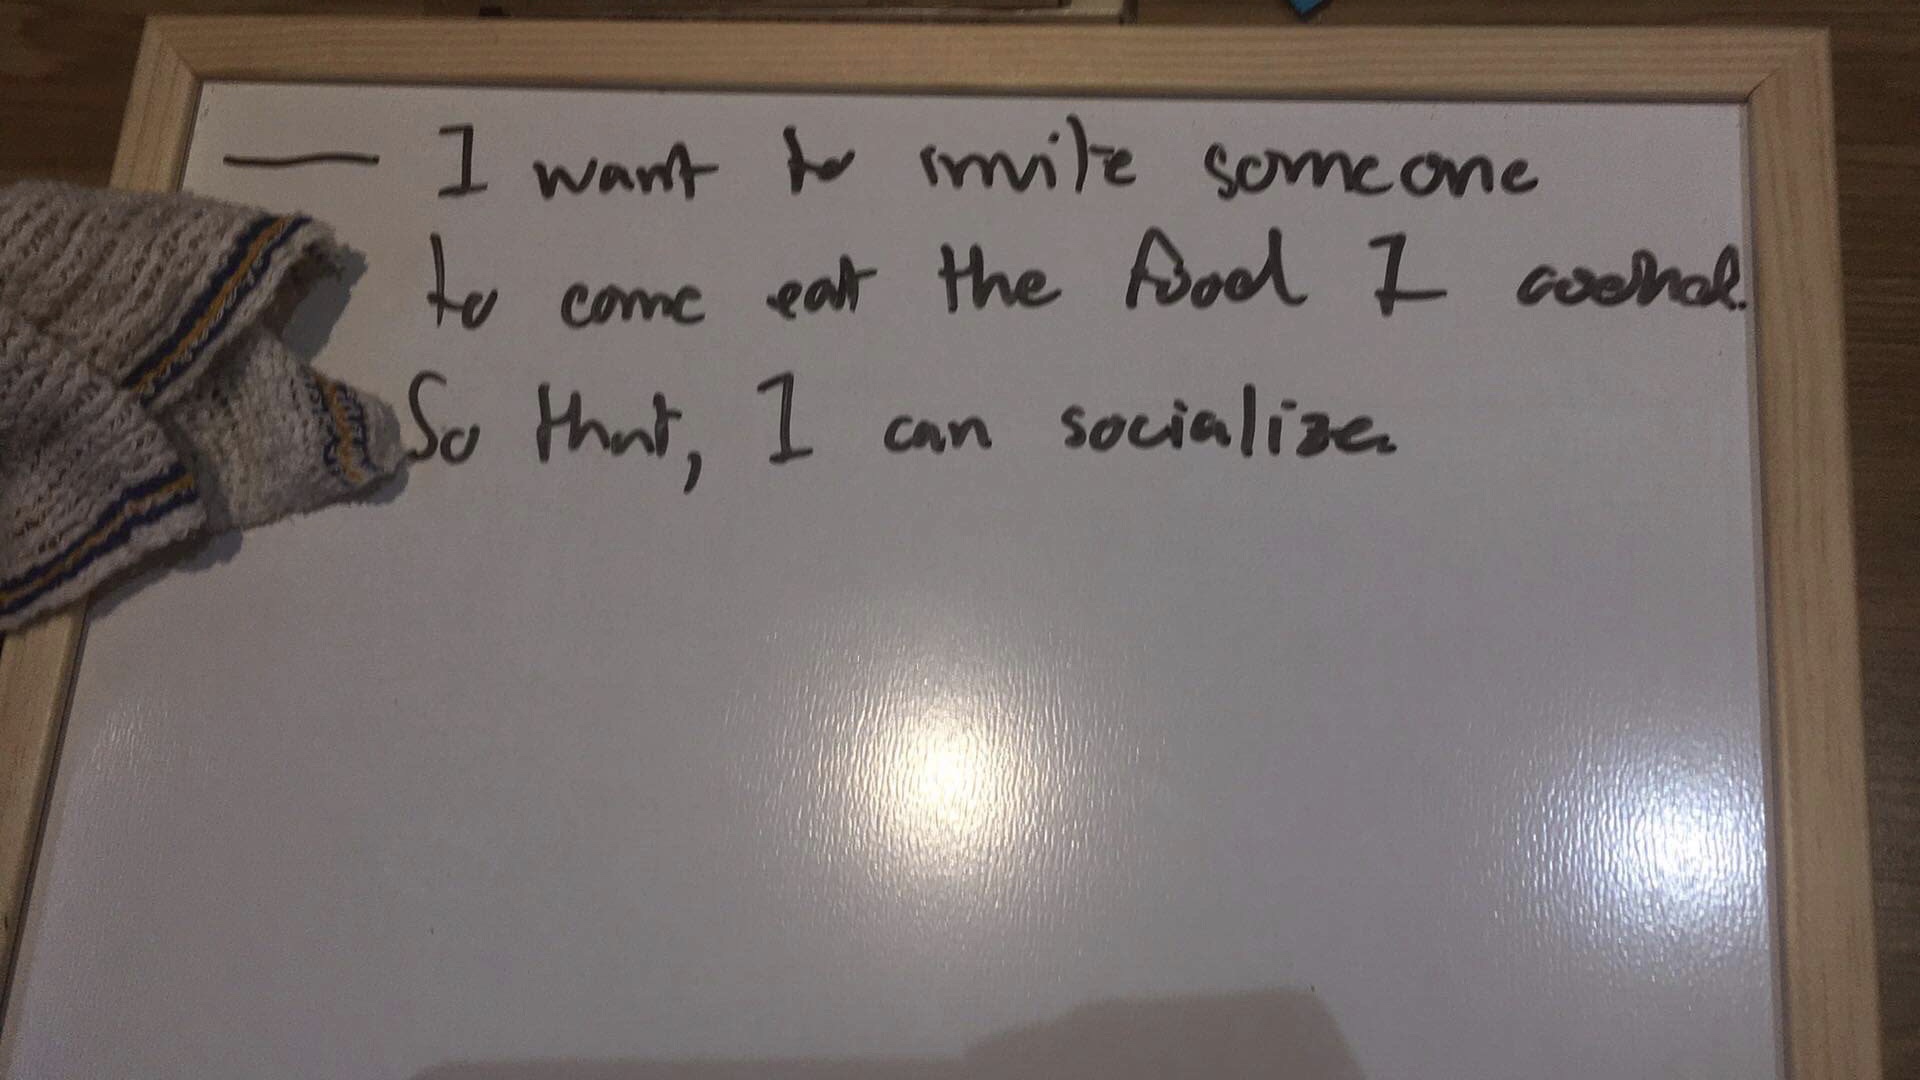 — I want to invite someone
to come eat the food I cooked.
So that, I can socialize.